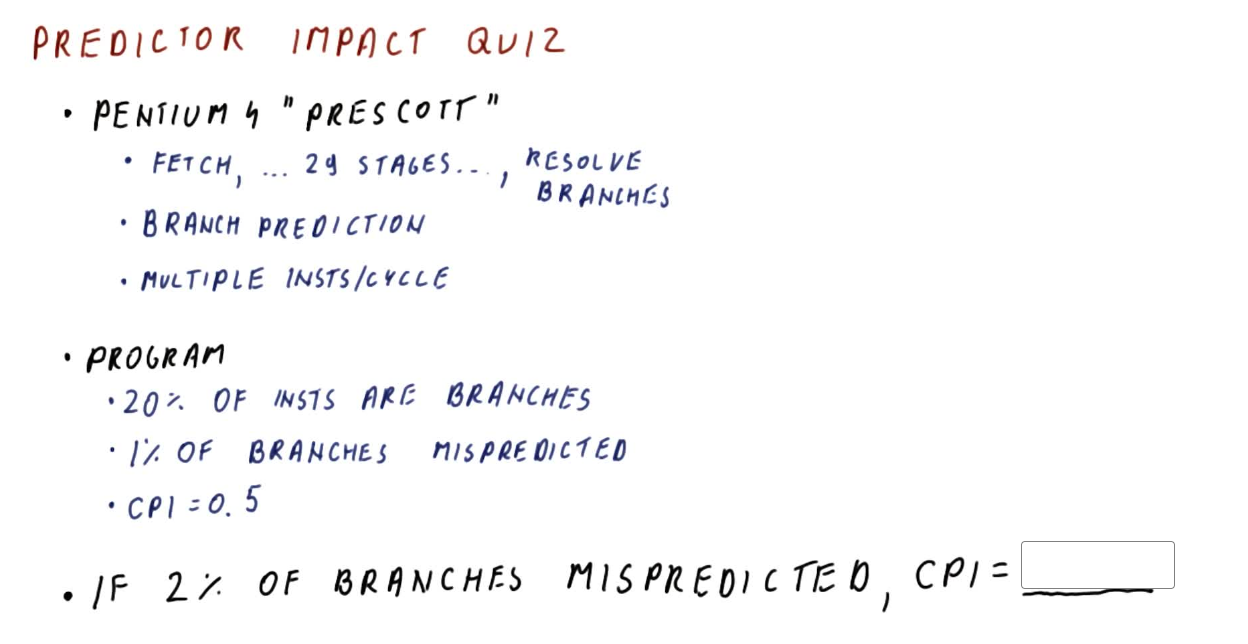 PREDICTOR IMPACT QUIZ
• PENTIUM 4 "PRESCOTT"
• FETCH, ... 29 STAGES..., RESOLVE BRANCHES
• BRANCH PREDICTION
• MULTIPLE INSTS/CYCLE
• PROGRAM
• 20% OF INSTS ARE BRANCHES
• 1% OF BRANCHES MISPREDICTED
• CPI = 0.5
• IF 2% OF BRANCHES MISPREDICTED, CPI =